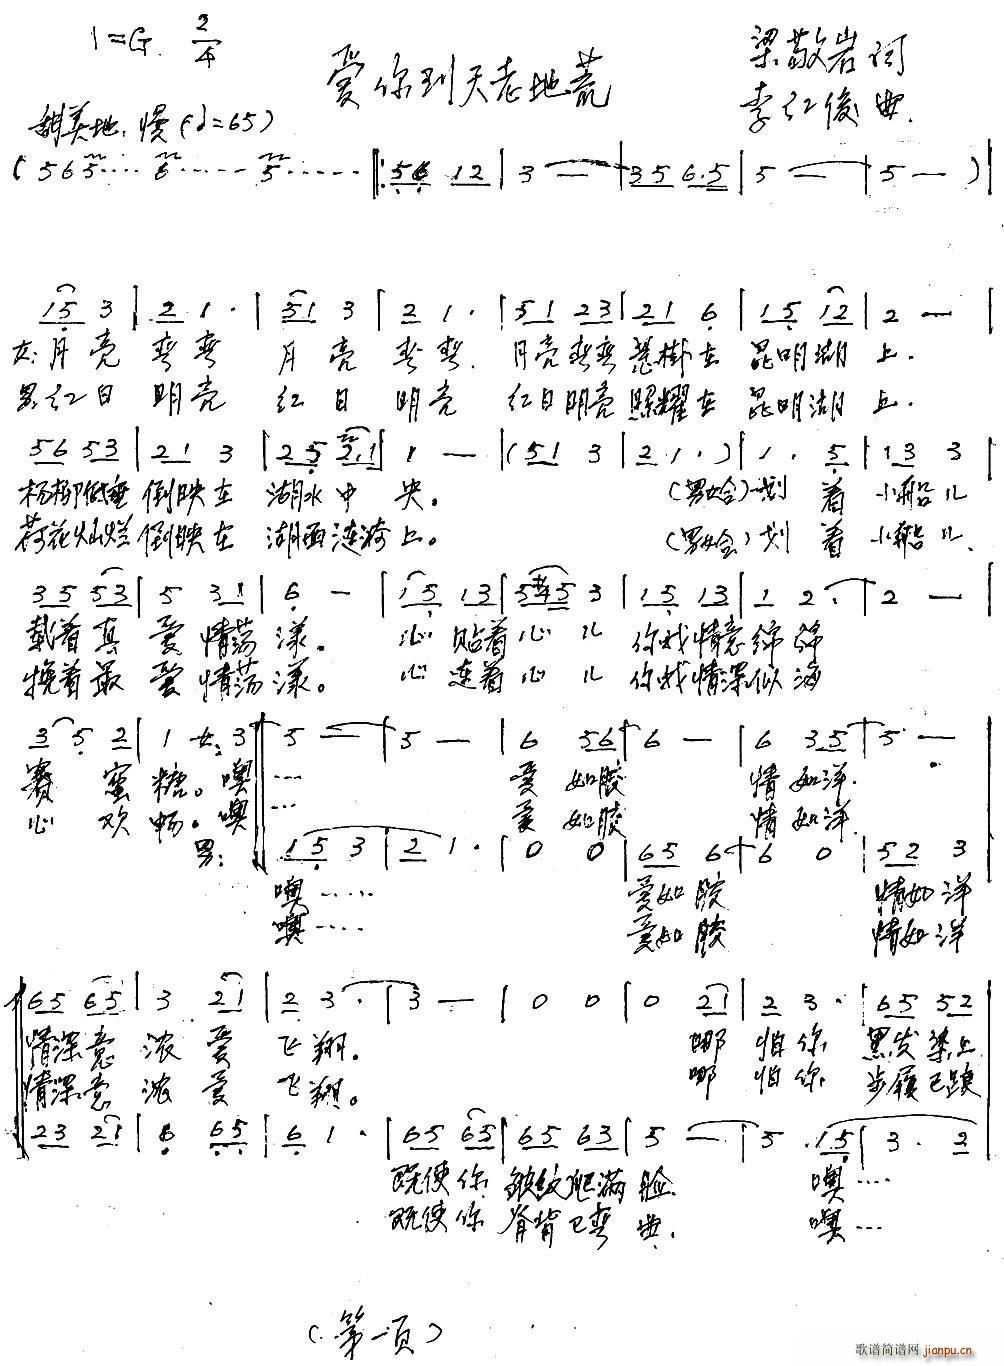 1=G 2/4
爱你到天老地荒
梁敬岩 词
李红俊 曲.
甜美地、慢 (♩=65)
( 5 6 5 ···· 6 ······ 5 ······ ‖: 56 12 | 3 — | 35 6.5 | 5 — | 5 — )
15 3 | 2 1 · | 51 3 | 2 1 · | 51 23 | 21 6 | 15 12 | 2 — |
女:月亮 弯弯 月亮 弯弯. 月亮弯弯 悬掛在 昆明湖 上.
男:红日 明亮 红日 明亮 红日明亮 照耀在 昆明湖 上.
56 53 | 21 3 | 25 2.1 | 1 — | (51 3 | 21 · ) | 1 · 5 | 13 3 |
杨柳低垂 倒映在 湖水中 央。 (男女合)划 着 小船儿
荷花灿烂 倒映在 湖面涟漪 上。 (男女合)划 着 小船儿.
35 53 | 5 31 | 6 — | 15 13 | 5#45 3 | 15 13 | 1 2 · | 2 — |
载着真 爱情荡 漾。 心 贴着心 儿 你我情意绵 绵
挽着最 爱情荡 漾。 心 连着心 儿 你我情深似 海
3 5 2 | 1 女: 3 ‖ 5 — | 5 — | 6 56 | 6 — | 6 35 | 5 — |
赛 蜜 糖。噢 ··· 爱 如胶 情 如洋.
心 欢 畅。噢 ··· 爱 如胶 情 如洋.
男: 15 3 | 2 1 · | 0 0 | 65 6 | 6 0 | 52 3 |
噢 ···· 爱如 胶 情如 洋
噢 ···· 爱如 胶 情如 洋
65 65 | 3 21 | 2 3 · | 3 — | 0 0 | 0 21 | 2 3 · | 65 52 |
情深意 浓 爱 飞 翔。 哪 怕 你 黑发染上
情深意 浓 爱 飞 翔。 哪 怕 你 步履已踉
23 21 | 6 65 | 6 1 · | 65 65 | 65 63 | 5 — | 5 · 15 | 3 · 2 |
既使你 皱纹爬满 脸. 噢 ····
既使你 脊背已弯 曲. 噢 ···
(第一页)
歌谱简谱网
jianpu.cn